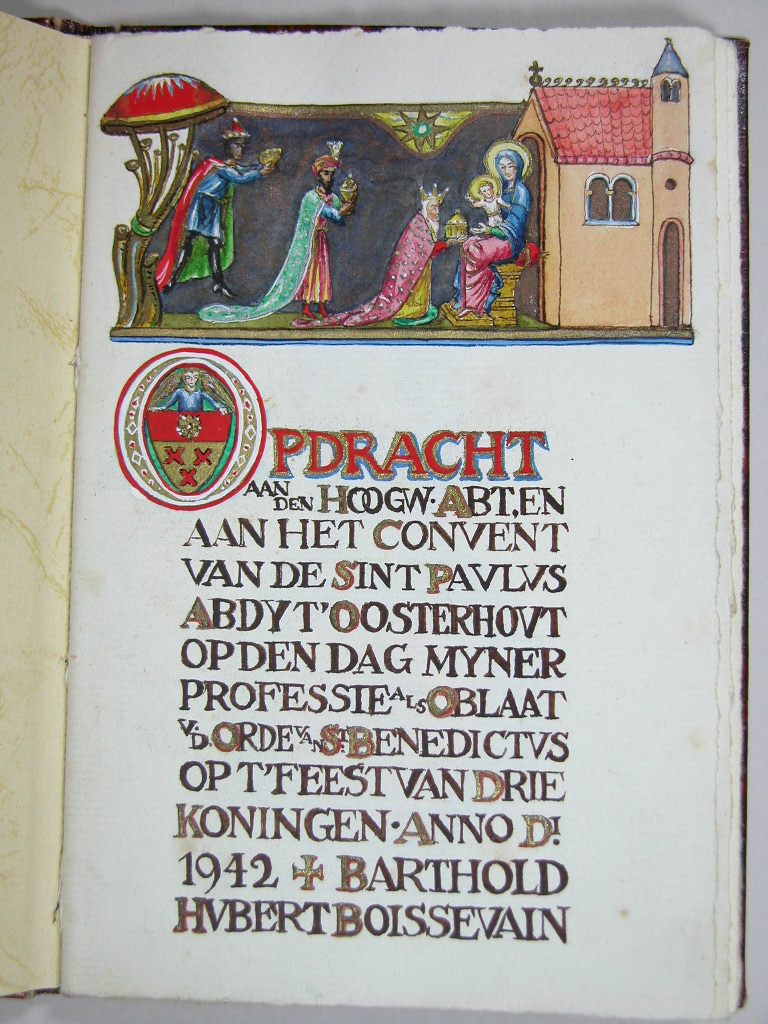 OPDRACHT
AAN DEN HOOGW·ABT, EN
AAN HET CONVENT
VAN DE SINT PAVLVS
ABDY T'OOSTERHOVT
OP DEN DAG MYNER
PROFESSIE ALS OBLAAT
V.D. ORDE VAN ST. BENEDICTVS
OP T'FEEST VAN DRIE
KONINGEN·ANNO DI
1942 + BARTHOLD
HVBERT BOISSEVAIN